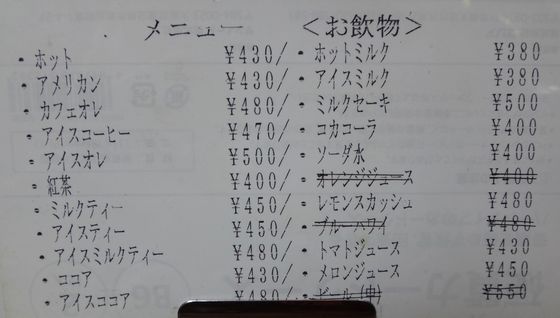 メニュー <お飲物>
・ホット ¥430/
・アメリカン ¥430/
・カフェオレ ¥480/
・アイスコーヒー ¥470/
・アイスオレ ¥500/
・紅茶 ¥400/
・ミルクティー ¥450/
・アイスティー ¥450/
・アイスミルクティー ¥480/
・ココア ¥430/
・アイスココア ¥480/
・ホットミルク ¥380
・アイスミルク ¥380
・ミルクセーキ ¥500
・コカコーラ ¥400
・ソーダ水 ¥400
・オレンジジュース ¥400
・レモンスカッシュ ¥480
・ブルーハワイ ¥480
・トマトジュース ¥430
・メロンジュース ¥450
・ビール(中) ¥550